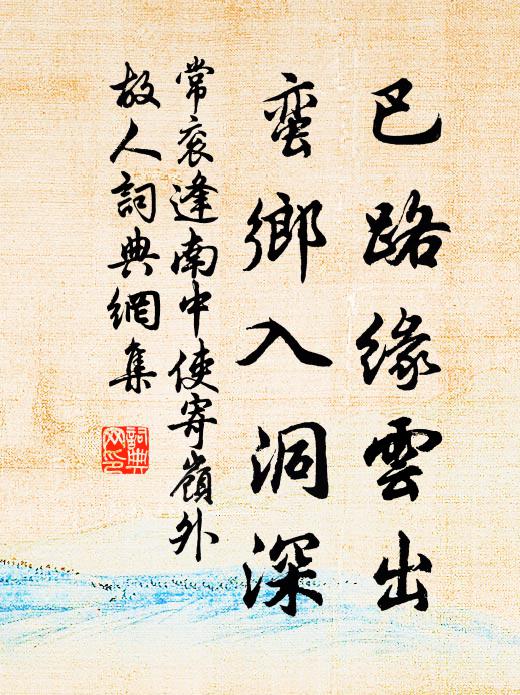 巴路缘雲出
蛮鄉入洞深
常衮逢南中使寄嶺外
故人詞典網集
詞典
网印